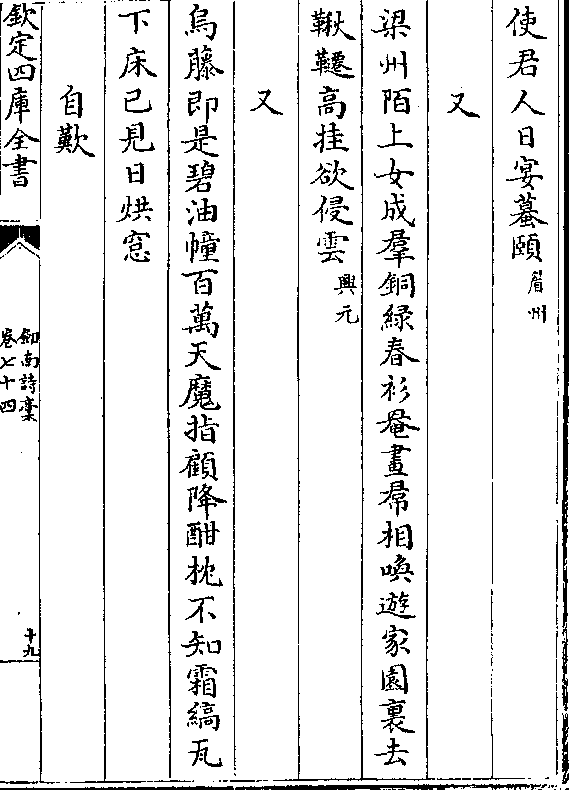 使君人日宴蟇頤眉州
又
梁州陌上女成羣銅緑春衫罨畫帬相喚遊家園裏去
鞦韆高挂欲侵雲興元
又
烏藤即是碧油幢百萬天魔指顧降酣枕不知霜縞瓦
下床已見日烘窓
自歎
欽定四庫全書
劒南詩稾
卷七十四
十九